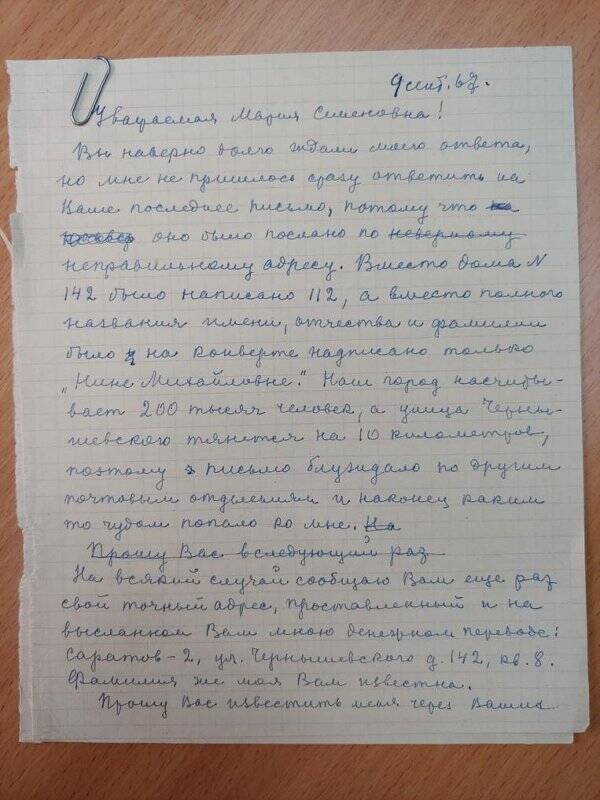 9 сент. 67.
Уважаемая Мария Семеновна!
Вы наверно долго ждали моего ответа,
но мне не пришлось сразу ответить на
Ваше последнее письмо, потому что на
оно было послано по неверному
неправильному адресу. Вместо дома N
142 было написано 112, а вместо полного
названия имени, отчества и фамилии
было на конверте надписано только
„Нине Михайловне." Наш город насчиты-
вает 200 тысяч человек, а улица Черны-
шевского тянется на 10 километров,
поэтому письмо блуждало по другим
почтовым отделениям и наконец каким
то чудом попало ко мне. На
Прошу Вас в следующий раз
На всякий случай сообщаю Вам еще раз
свой точный адрес, проставленный и на
высланном Вам мною денежном переводе:
Саратов-2, ул. Чернышевского д. 142, кв. 8.
Фамилия же моя Вам известна.
Прошу Вас известить меня через Ваших